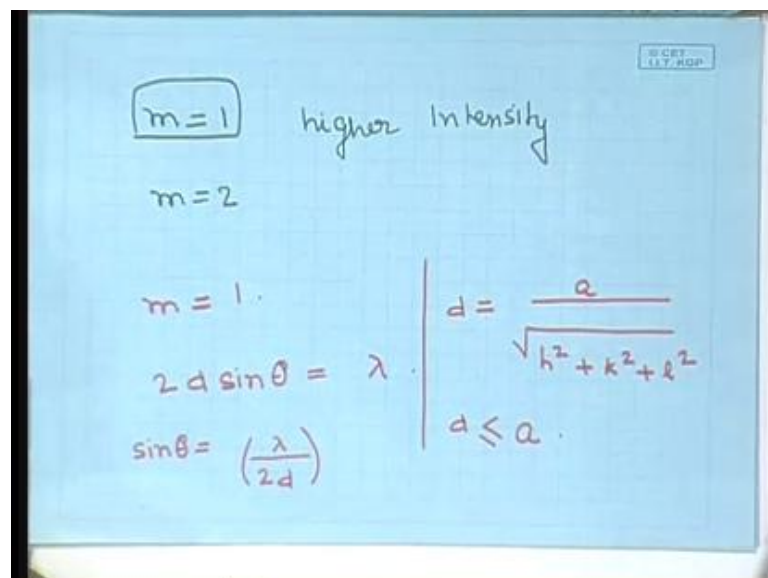 © CET
I.I.T. KGP
m = 1 higher Intensity
m = 2
m = 1.
2 d sin θ = λ.
sin θ = (λ / 2d)
d = a / √h² + k² + l²
d ⩽ a.